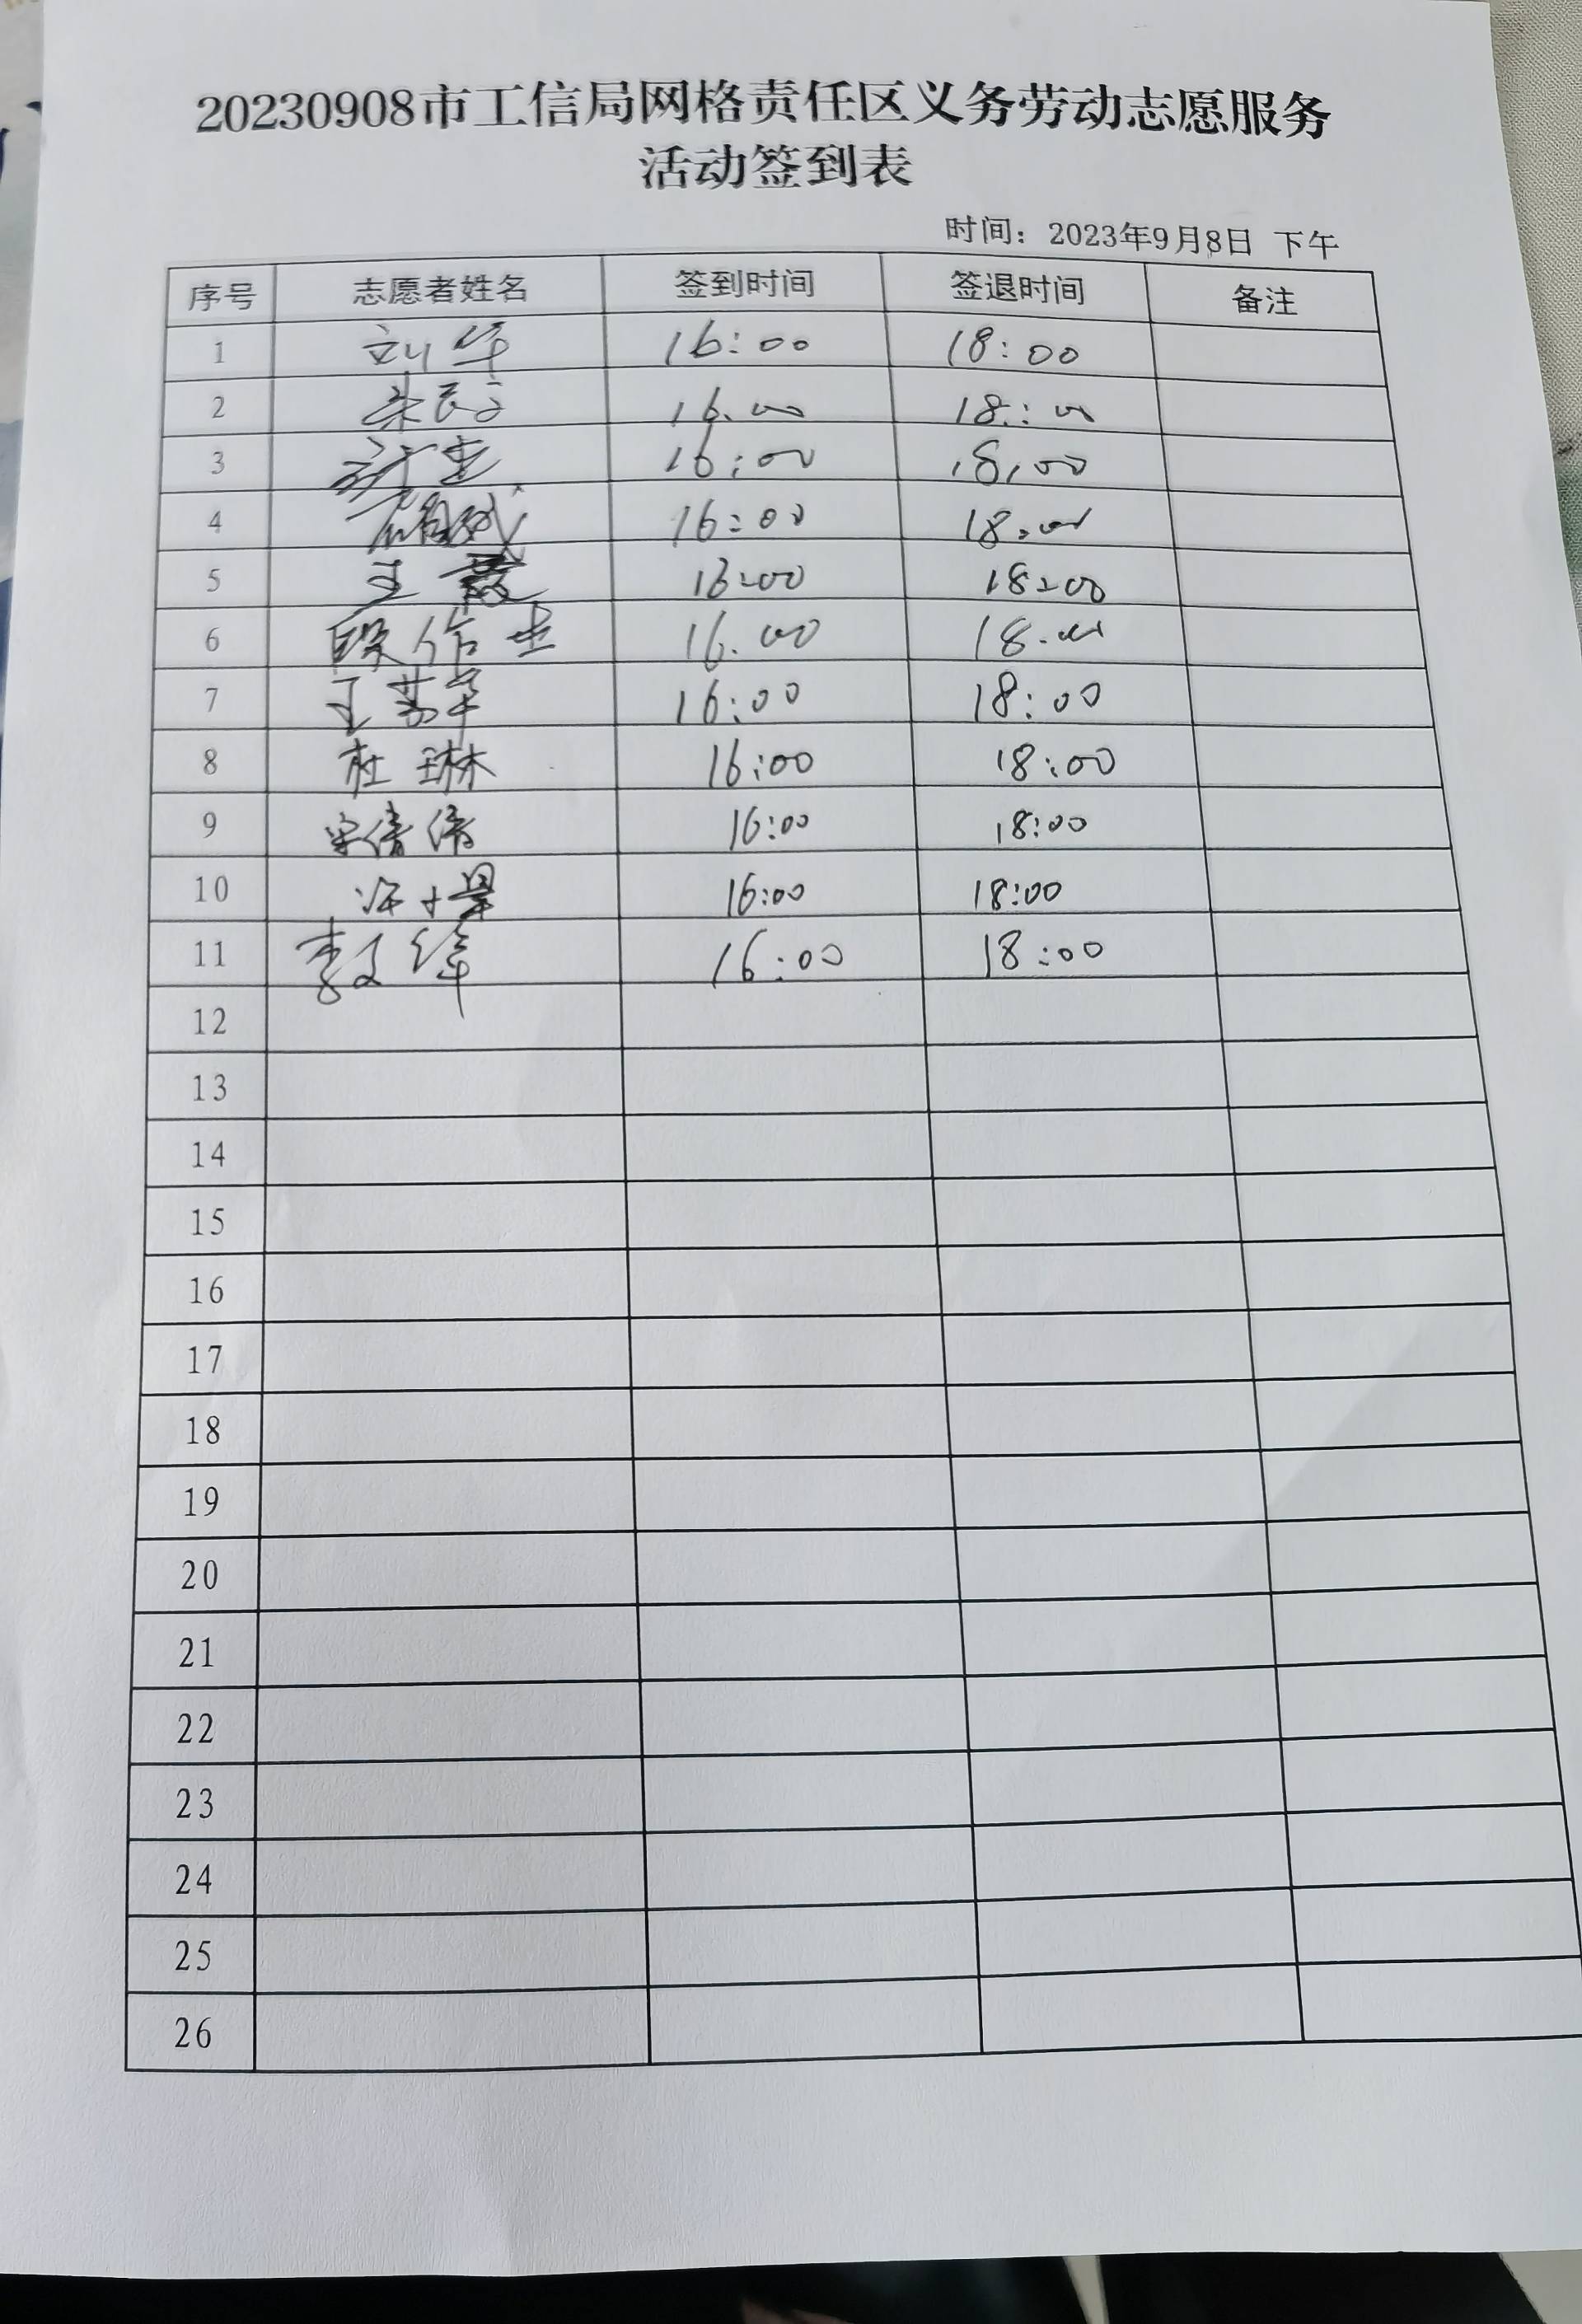 20230908市工信局网格责任区义务劳动志愿服务
活动签到表
时间：2023年9月8日 下午
序号 志愿者姓名 签到时间 签退时间 备注
1 刘华 16:00 18:00
2 16.00 18:00
3 16:00 18,00
4 16:00 18.00
5 王霞 16:00 18:00
6 段作忠 16.00 18.00
7 王苏华 16:00 18:00
8 杜琳 16:00 18:00
9 宋倩倩 16:00 18:00
10 16:00 18:00
11 16:00 18:00
12
13
14
15
16
17
18
19
20
21
22
23
24
25
26